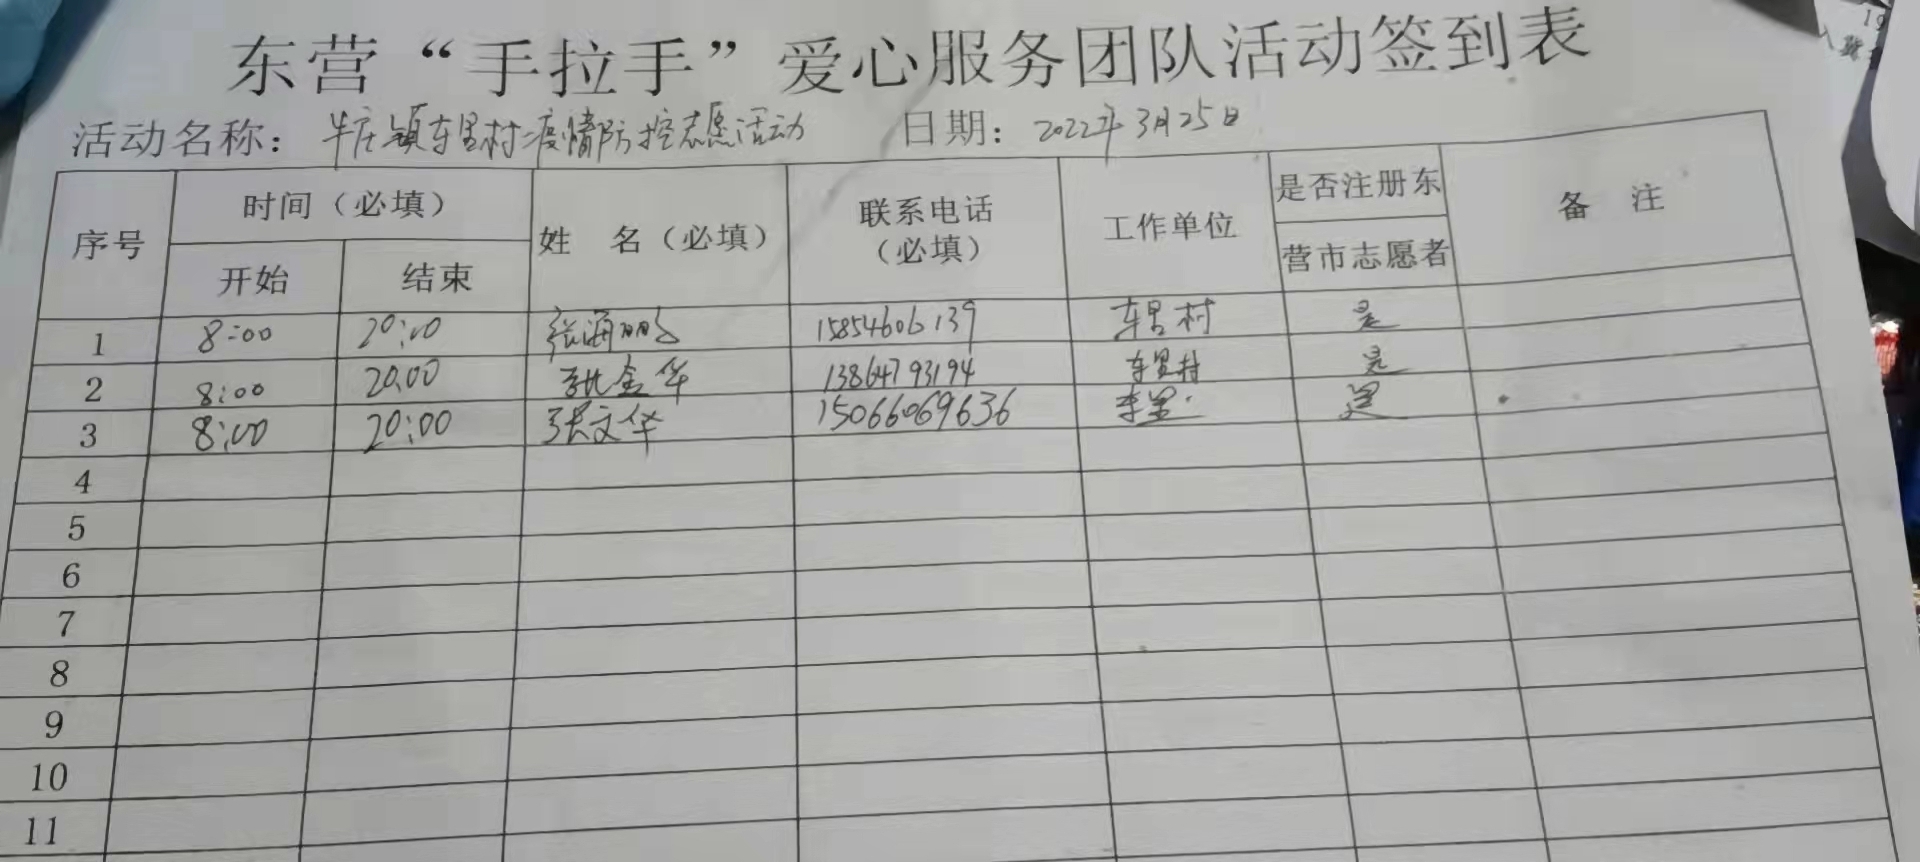 东营“手拉手”爱心服务团队活动签到表
活动名称：牛庄镇东里村疫情防控志愿活动 日期：2022年3月25日
序号 时间（必填） 姓 名（必填） 联系电话（必填） 工作单位 是否注册东营市志愿者 备 注
开始 结束
1 8:00 20:00 张海鹏 15854606139 车里村 是
2 8:00 20:00 张金华 13864793194 车里村 是
3 8:00 20:00 张文华 15066069636 车里 是
4
5
6
7
8
9
10
11